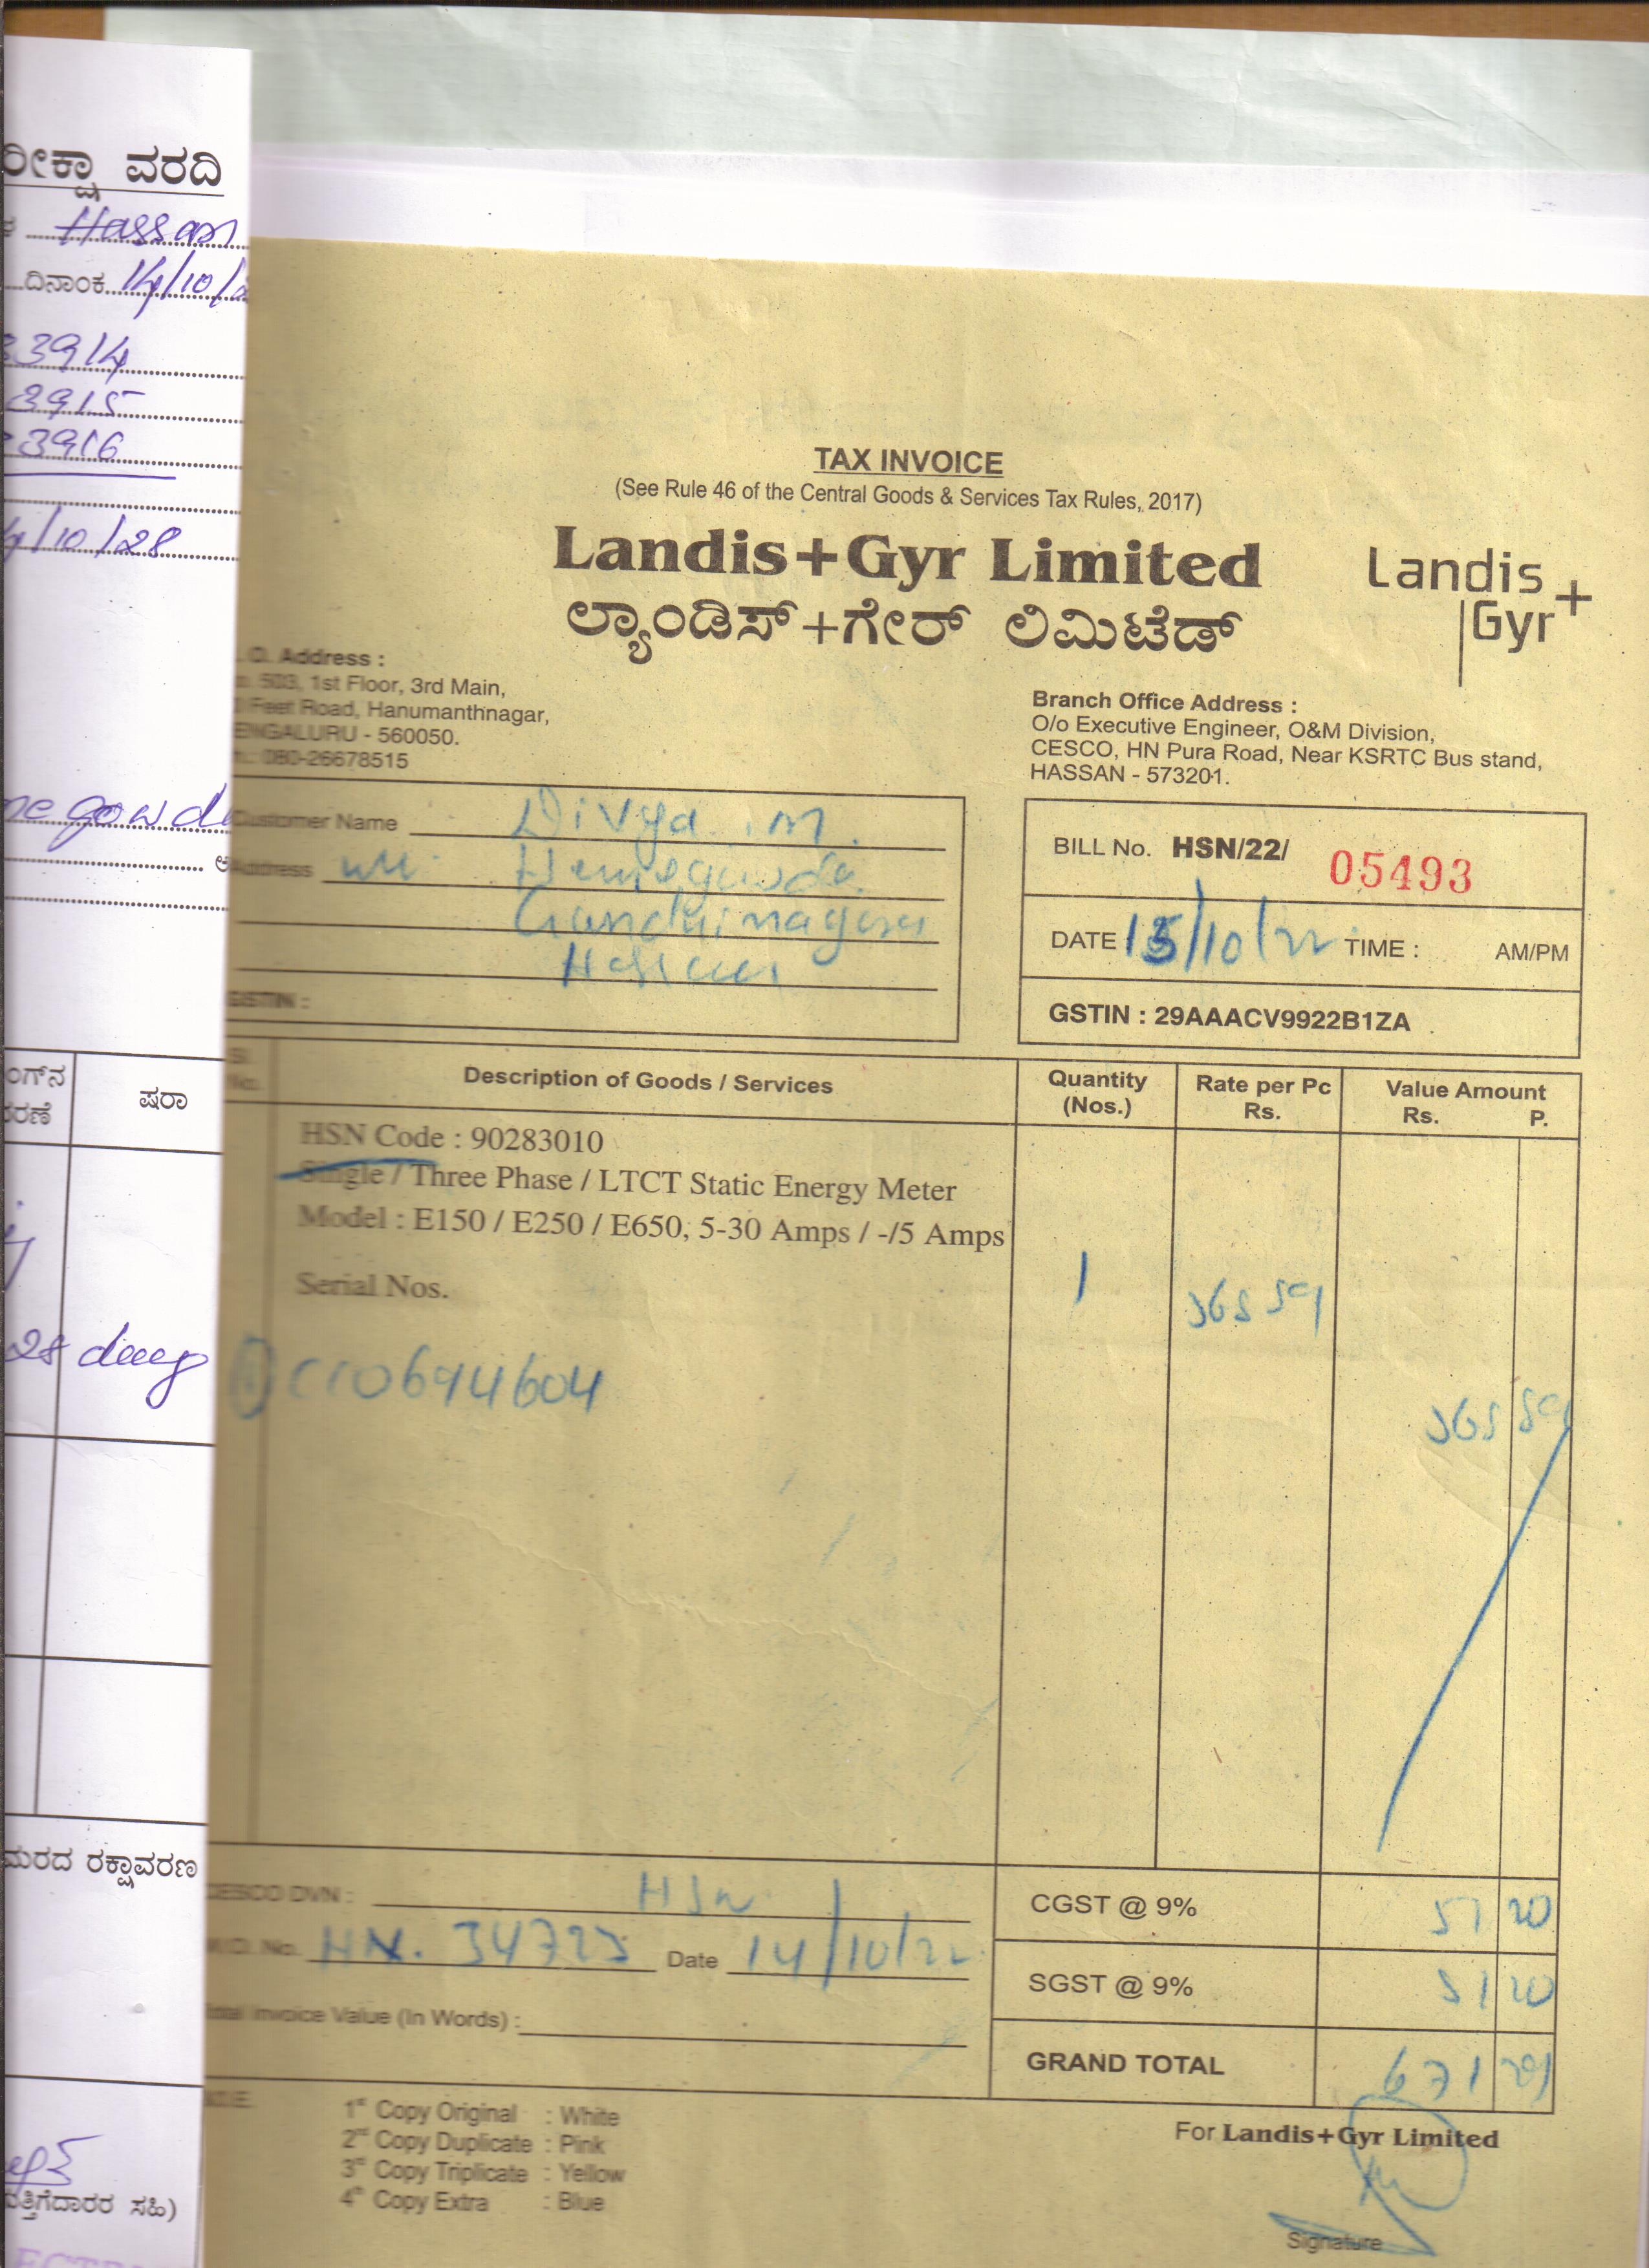 ವರದಿ
Hassan
ದಿನಾಂಕ 14/10/
3914
3915
3916
/10/28
gowd
ಷರಾ
28 days
ರಕ್ಷಾವರಣ
ಸಹಿ)
TAX INVOICE
(See Rule 46 of the Central Goods & Services Tax Rules, 2017)
Landis+Gyr Limited
ಲ್ಯಾಂಡಿಸ್+ಗೇರ್ ಲಿಮಿಟೆಡ್
Landis+
Gyr
O. Address :
503, 1st Floor, 3rd Main,
Feet Road, Hanumanthnagar,
BENGALURU - 560050.
080-26678515
Branch Office Address :
O/o Executive Engineer, O&M Division,
CESCO, HN Pura Road, Near KSRTC Bus stand,
HASSAN - 573201.
Customer Name Divya .M.
Address Hemegowda
Gandhinagara
Hassan
GSTIN :
BILL No. HSN/22/ 05493
DATE 15/10/22 TIME : AM/PM
GSTIN : 29AAACV9922B1ZA
Sl. No. Description of Goods / Services Quantity (Nos.) Rate per Pc Rs. Value Amount Rs. P.
HSN Code : 90283010
Single / Three Phase / LTCT Static Energy Meter
Model : E150 / E250 / E650, 5-30 Amps / -/5 Amps
Serial Nos.
1
CESCO DVN : HSN
W.O. No. Date 14/10/22
Total Invoice Value (In Words) :
CGST @ 9% 51 20
SGST @ 9% 51 20
GRAND TOTAL 671
NOTE:
1st Copy Original : White
2nd Copy Duplicate : Pink
3rd Copy Triplicate : Yellow
4th Copy Extra : Blue
For Landis+Gyr Limited
Signature